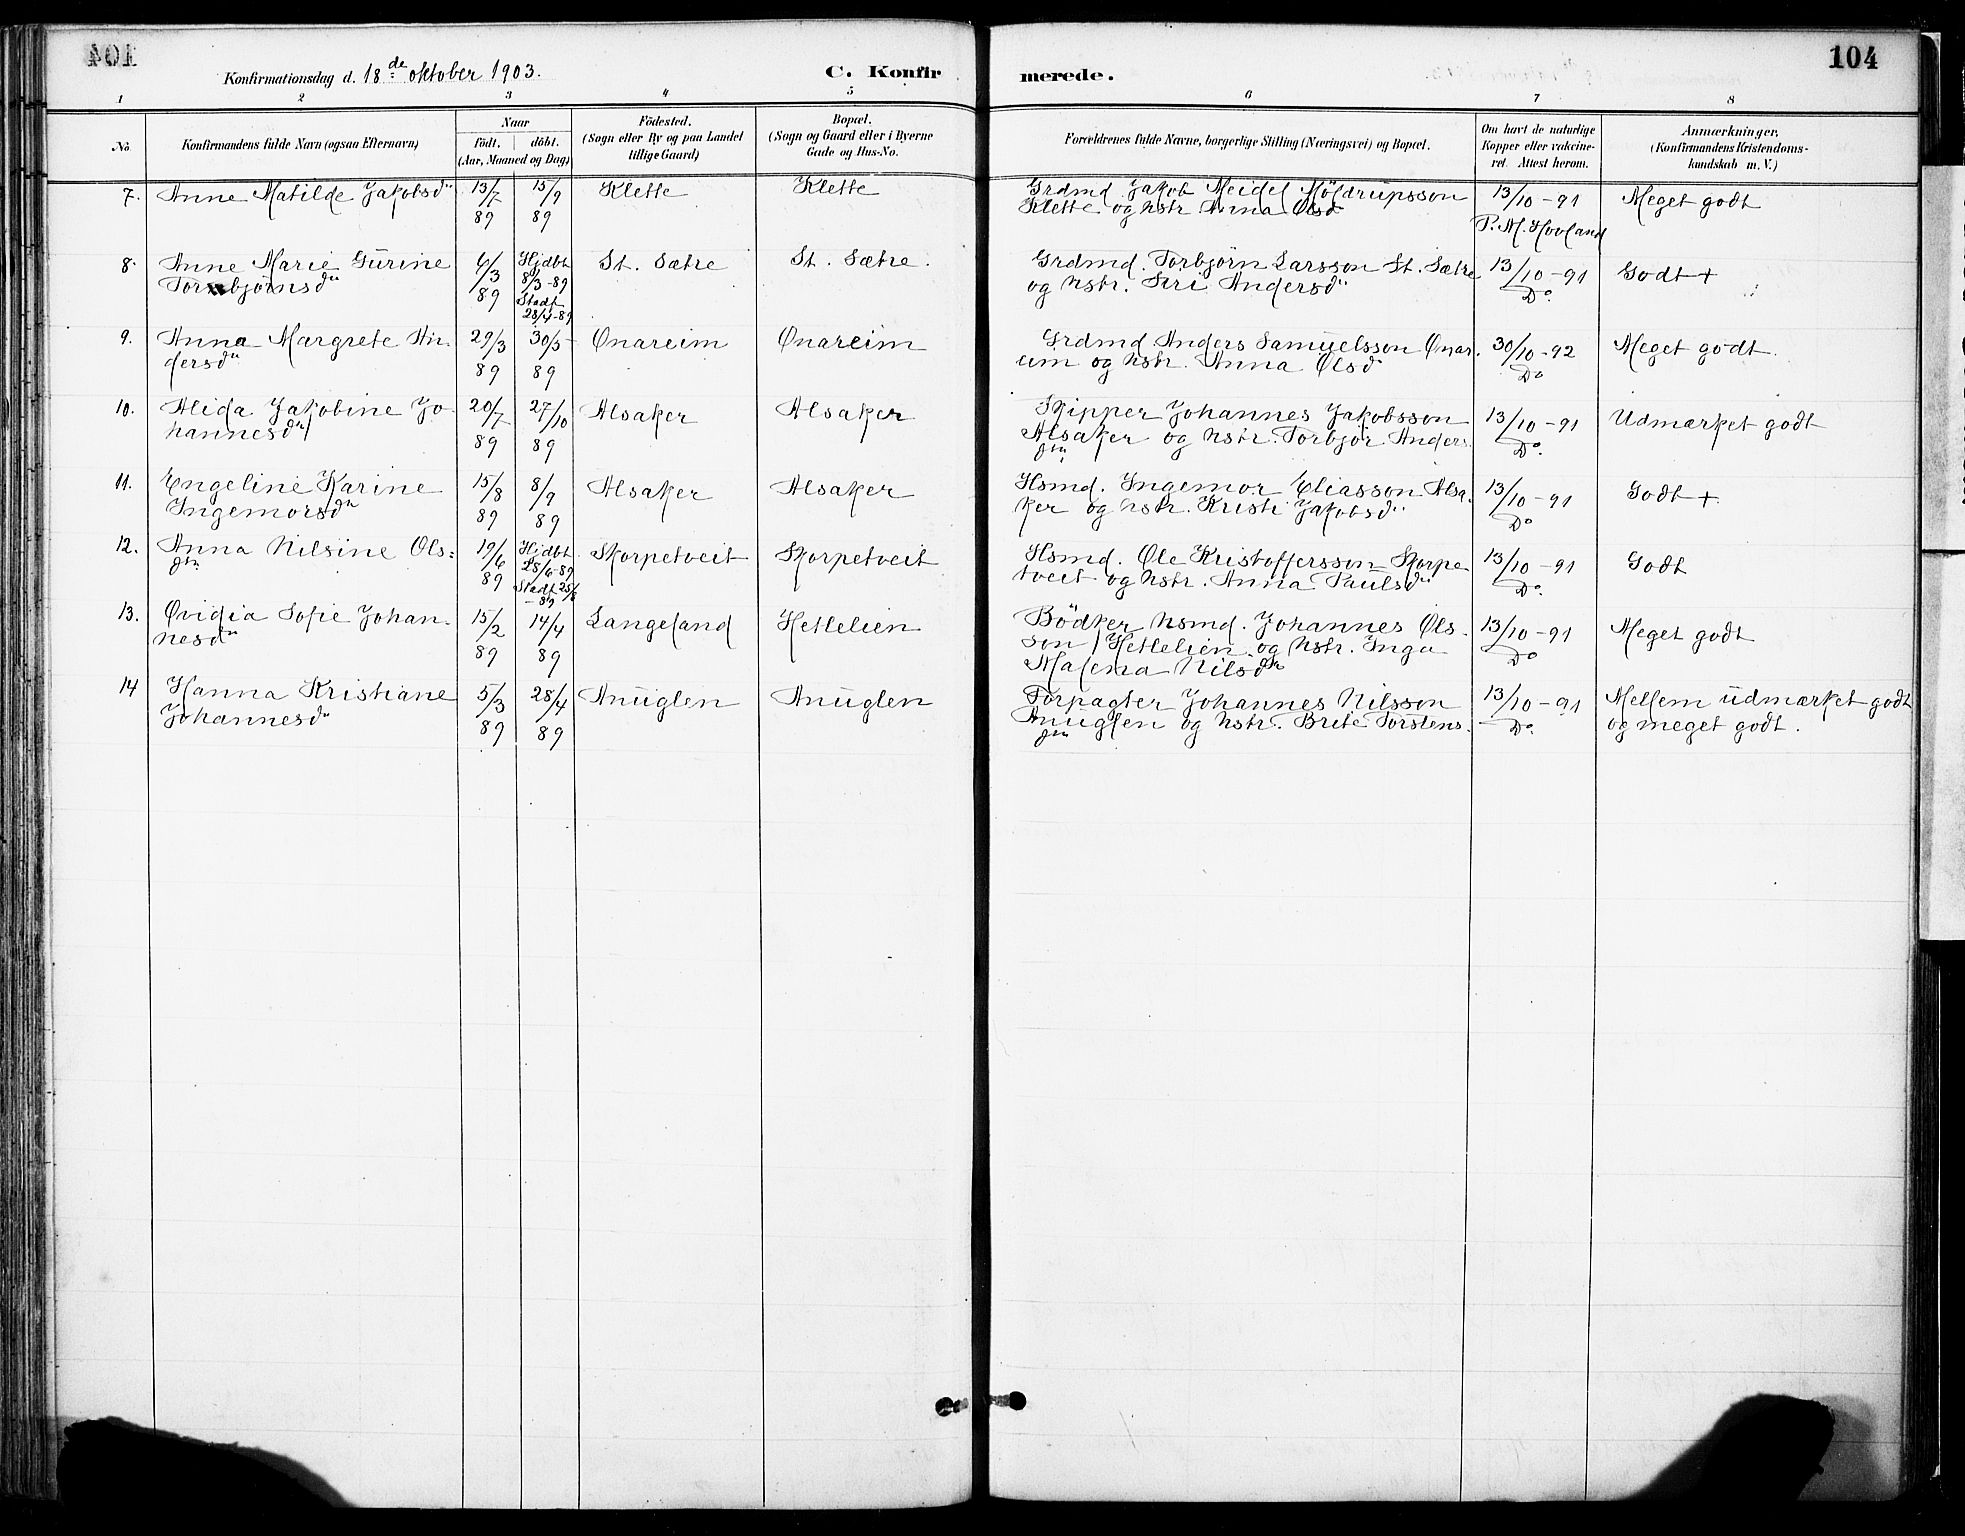 104
Konfirmationsdag d. 18de oktober 1903.
C. Konfirmerede.
1 2 3 4 5 6 7 8
No.
Konfirmandens fulde Navn (ogsaa Efternavn)
Naar
födt. döbt.
(Aar, Maaned og Dag)
Födested.
(Sogn eller By og paa Landet
tillige Gaard)
Bopæl.
(Sogn og Gaard eller i Byerne
Gade og Hus-No.
Forældrenes fulde Navne, borgerlige Stilling (Næringsvei) og Bopæl.
Om havt de naturlige
Kopper eller vakcine-
ret. Attest herom.
Anmærkninger.
(Konfirmandens Kristendoms-
kundskab m. V.)
7. Anne Matilde Jakobsdtr 13/7 89 15/9 89 Klette Klette
Grdmd. Jakob Meidel Möldrupsson
Klette og hstr. Anna Olsdtr
13/10-91
P. M. Hovland
Meget godt
8. Anne Marie Gurine
Torbjörnsdtr
6/3 89
Hjdbt
8/3-89
Stadf
28/4-89
St. Sætre St. Sætre.
Grdmd. Torbjörn Larsson St. Sætre
og hstr. Siri Andersdtr
13/10-91
Do.
Godt +
9. Anna Margrete An-
dersdtr
29/3 89 30/5 89 Onareim Onareim
Grdmd Anders Samuelsson Onar-
eim og hstr. Anna Olsdtr
30/10-92
Do
Meget godt.
10. Alida Jakobine Jo-
hannesdtr
20/7 89 27/10 89 Alsaker Alsaker
Skipper Johannes Jakobsson
Alsaker og hstr. Torbjør Anders-
dtr
13/10-91
Do.
Udmærket godt
11. Engeline Karine
Ingemorsdtr
15/8 89 8/9 89 Alsaker Alsaker
Hsmd. Ingemor Eliasson Alsa-
ker og hstr. Kristi Jakobsdtr
13/10-91
Do
Godt +
12. Anna Nilsine Ols-
dtr
19/6 89
Hjdbt
28/6-89
Stadf 25/8
-89
Skorpetveit Skorpetveit
Hsmd. Ole Kristoffersson Skorpe
tveit og hstr. Anna Paulsdtr
13/10-91
Do.
Godt
13. Ovidia Sofie Johan-
nesdtr
15/2 89 14/4 89 Langeland Hetlelien
Bödker hsmd. Johannes Ols-
son Hetlelien og hstr. Inga
Malena Nilsdtr
13/10-91
Do
Meget godt
14 Hanna Kristiane
Johannesdtr
5/3 89 28/4 89 Anuglen Anuglen
Forpagter Johannes Nilsson
Anuglen og hstr. Brite Torstens-
dtr
13/10-91
Do.
Mellem udmærket godt
og meget godt.